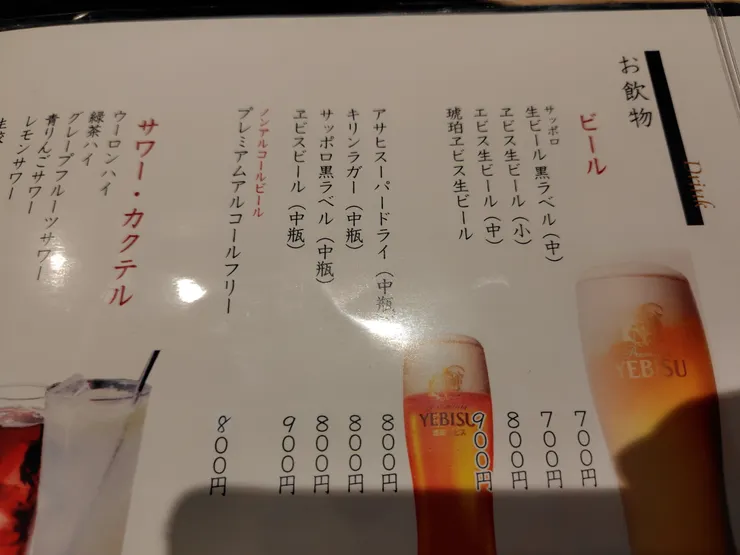 お飲物
Drink
ビール
サッポロ
生ビール 黒ラベル（中）
700円
ヱビス生ビール（小）
700円
エビス生ビール（中）
800円
琥珀ヱビス生ビール
900円
アサヒスーパードライ（中瓶）
800円
キリンラガー（中瓶）
800円
サッポロ黒ラベル（中瓶）
800円
ヱビスビール（中瓶）
900円
ノンアルコールビール
プレミアムアルコールフリー
800円
サワー・カクテル
ウーロンハイ
緑茶ハイ
グレープフルーツサワー
青りんごサワー
レモンサワー
YEBISU
YEBISU